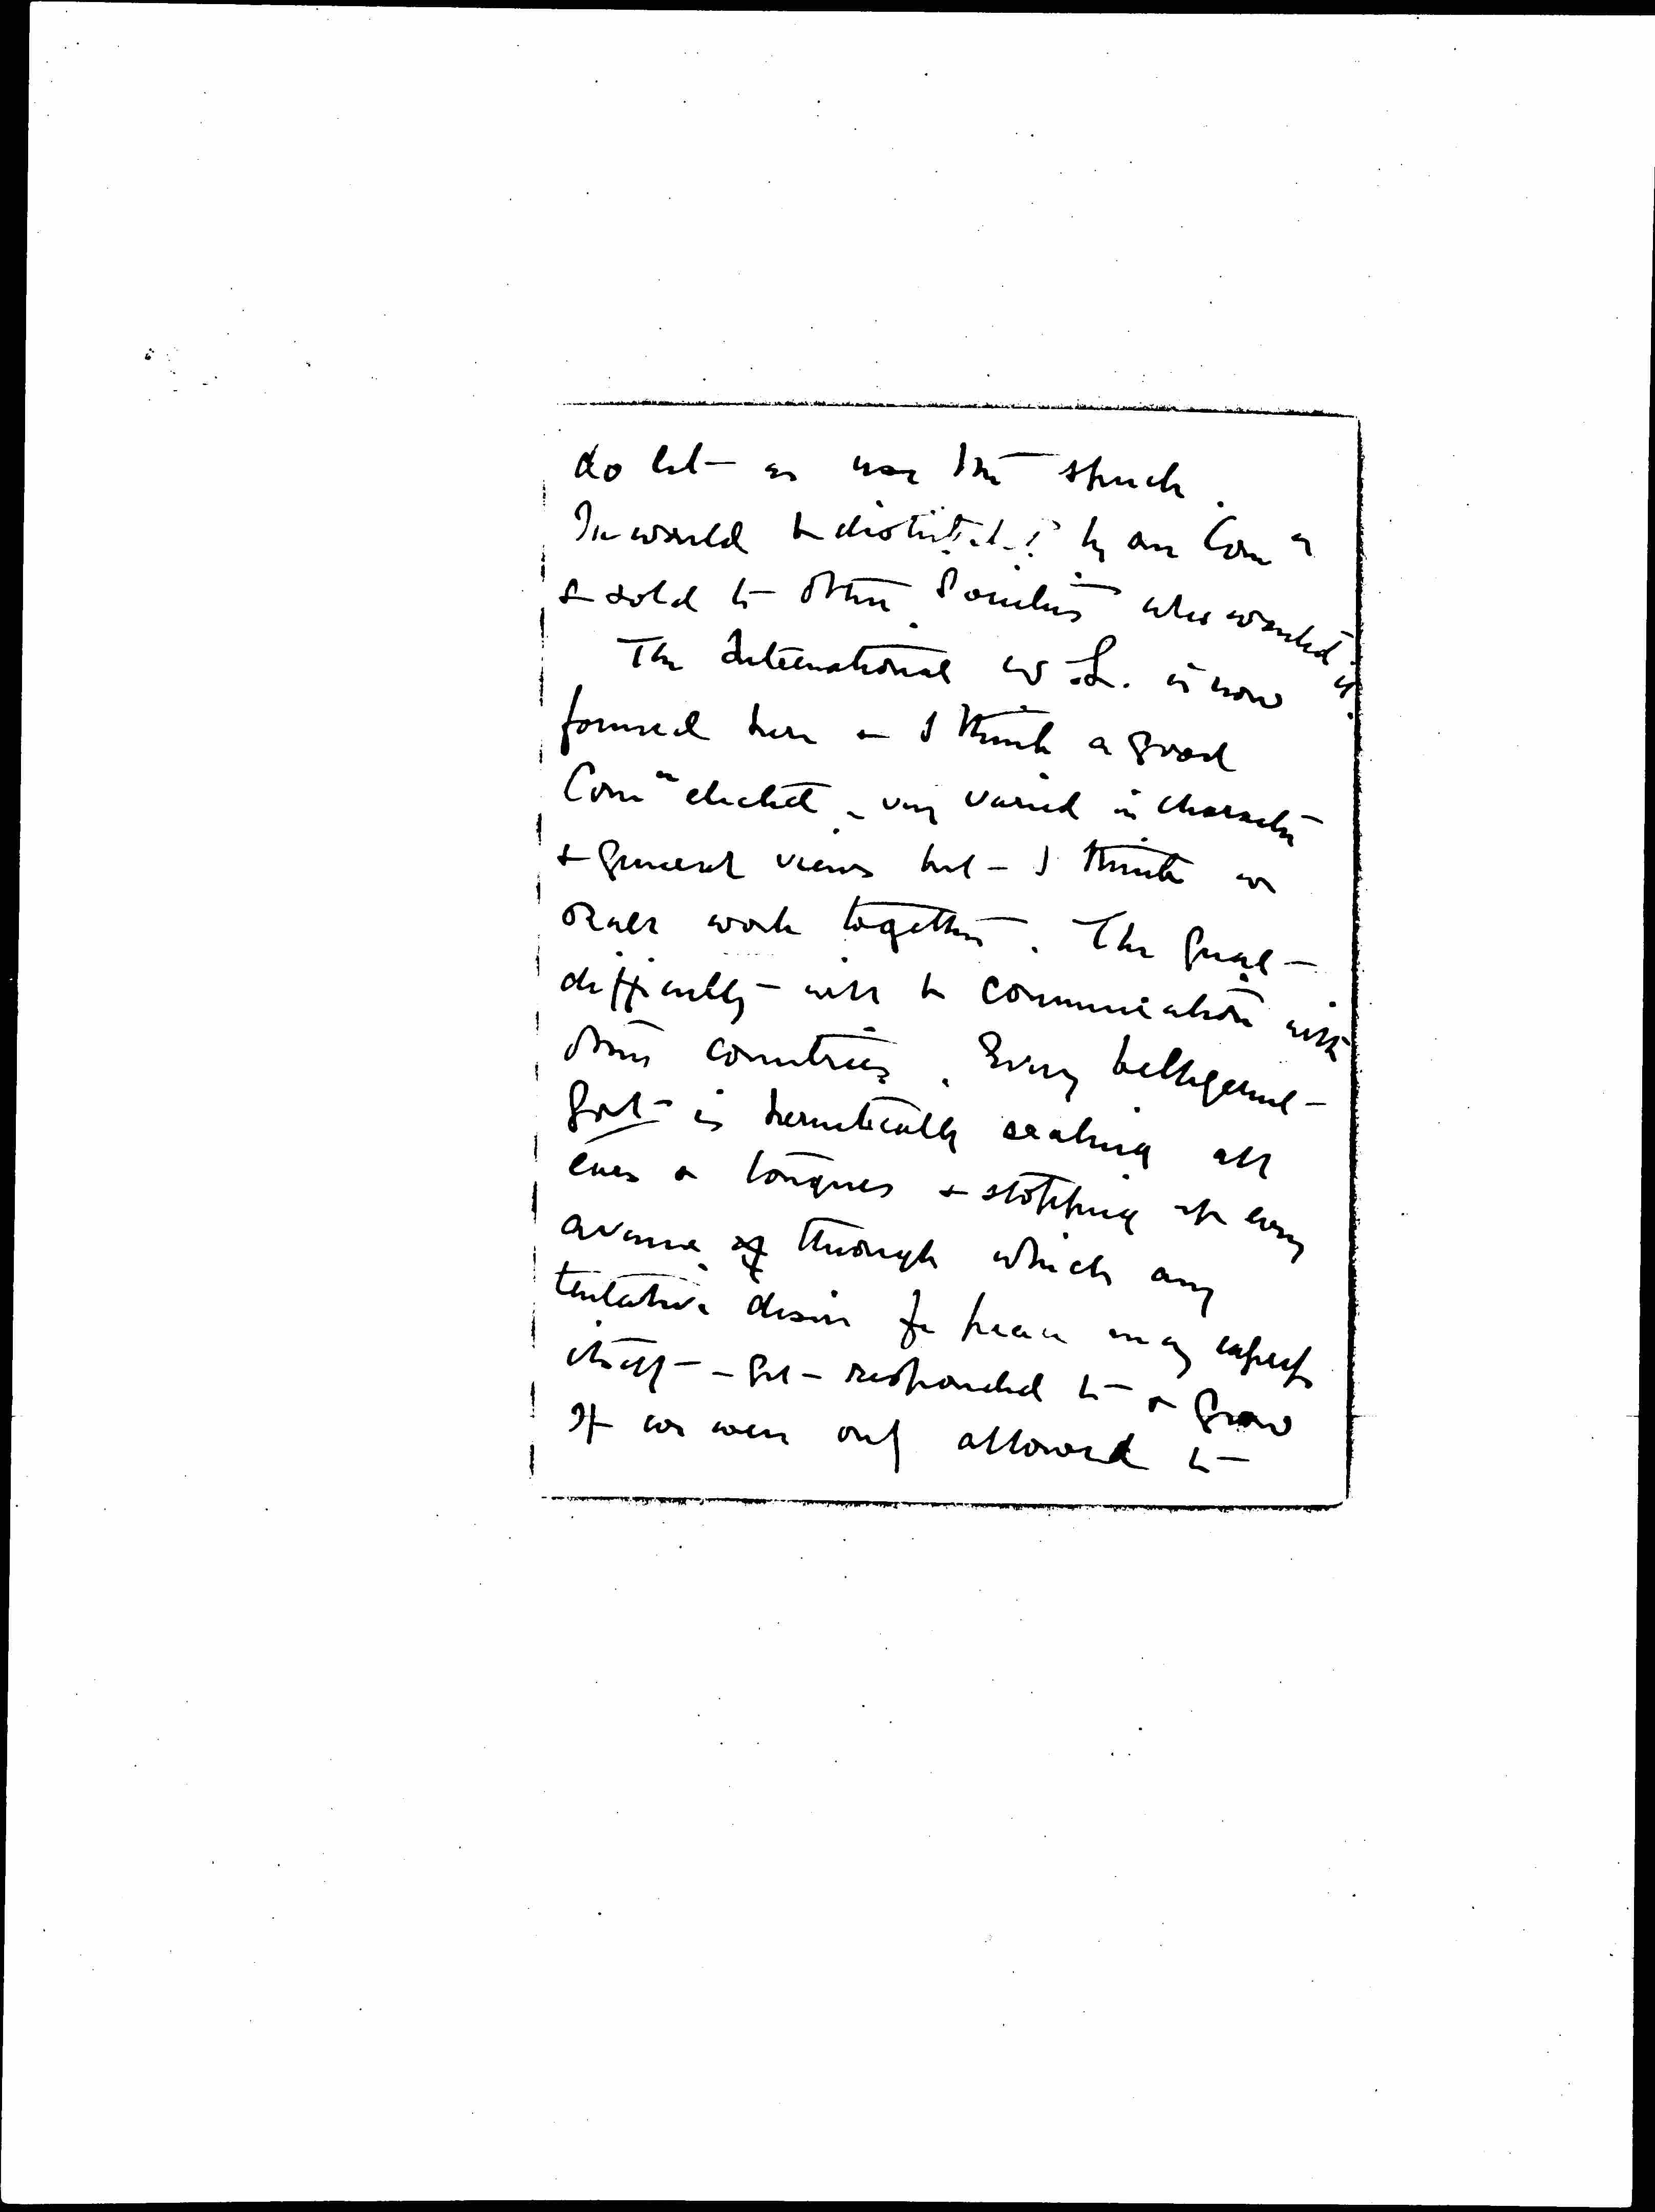 do let us use the speech.
It would be distributed by our Com ee
& sold to other Societies who wanted it.
The International W.L. is now
formed here & I think a good
Com ee elected - very varied in character
& general views but I think we
shall work together. The great
difficulty will be communication with
other countries. Every belligerent
Govt is hermetically sealing all
ears & tongues & stopping up every
avenue of through which any
tentative desire for peace may express
itself - get responded to & grow
If we were only allowed to